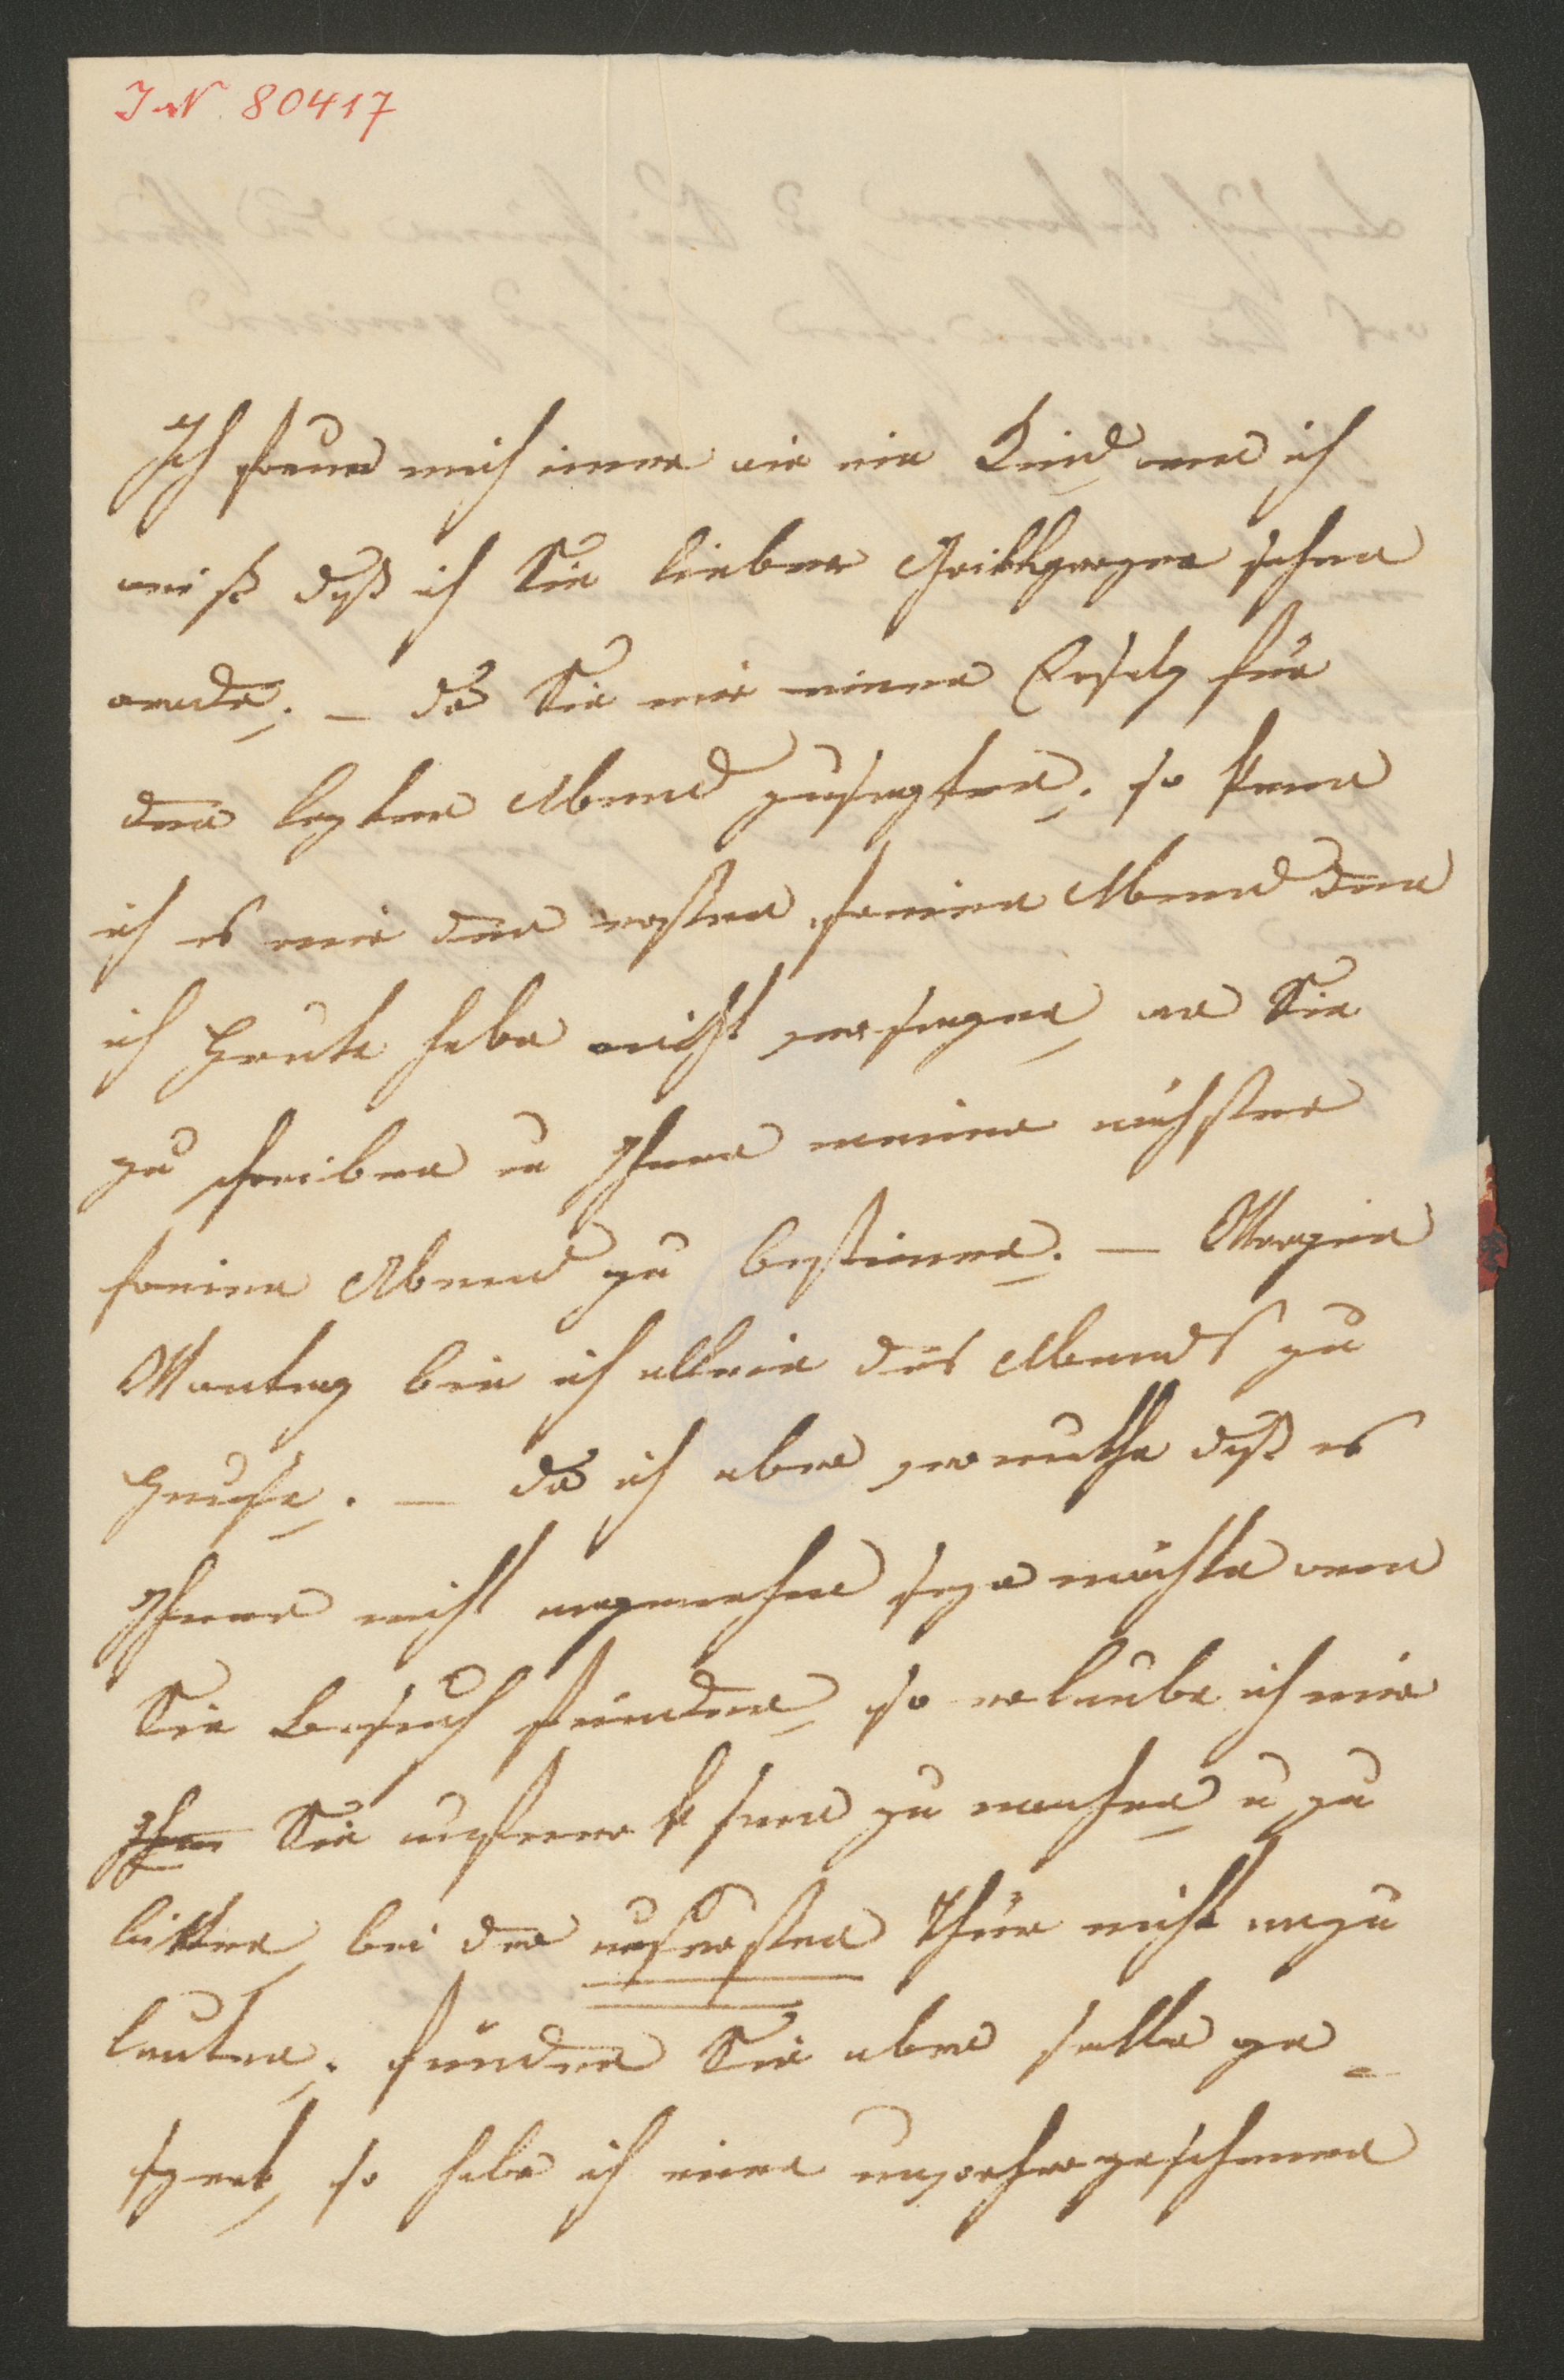 I. N. 80417
Ich freue mich immer wie ein Kind, wenn ich
weiß daß ich Sie lieber Grillparzer sehen
werde, . – da Sie mir einen Ersatz für
den lezten Abend zusagten, . so kann
ich es mir den ersten freien Abend den
ich Heute habe nicht versagen, an Sie
zu schreiben u Ihnen meine nächsten
freien Abend zu bestimmen, . – Morgen
Montag bin ich allein des Abends zu
Hause, . – da ich aber vermuthe daß es
Ihnen nicht angenehm seyn möchte wenn
Sie Besuch fänden, so erlaube ich mir
Ihnen Sie aufmerksam zu machen, u zu
bitten, bei der unsersten Thür nicht anzu
leuten, . finden Sie aber selbe ge =
spert, so habe ich einen unvorhergesehenen